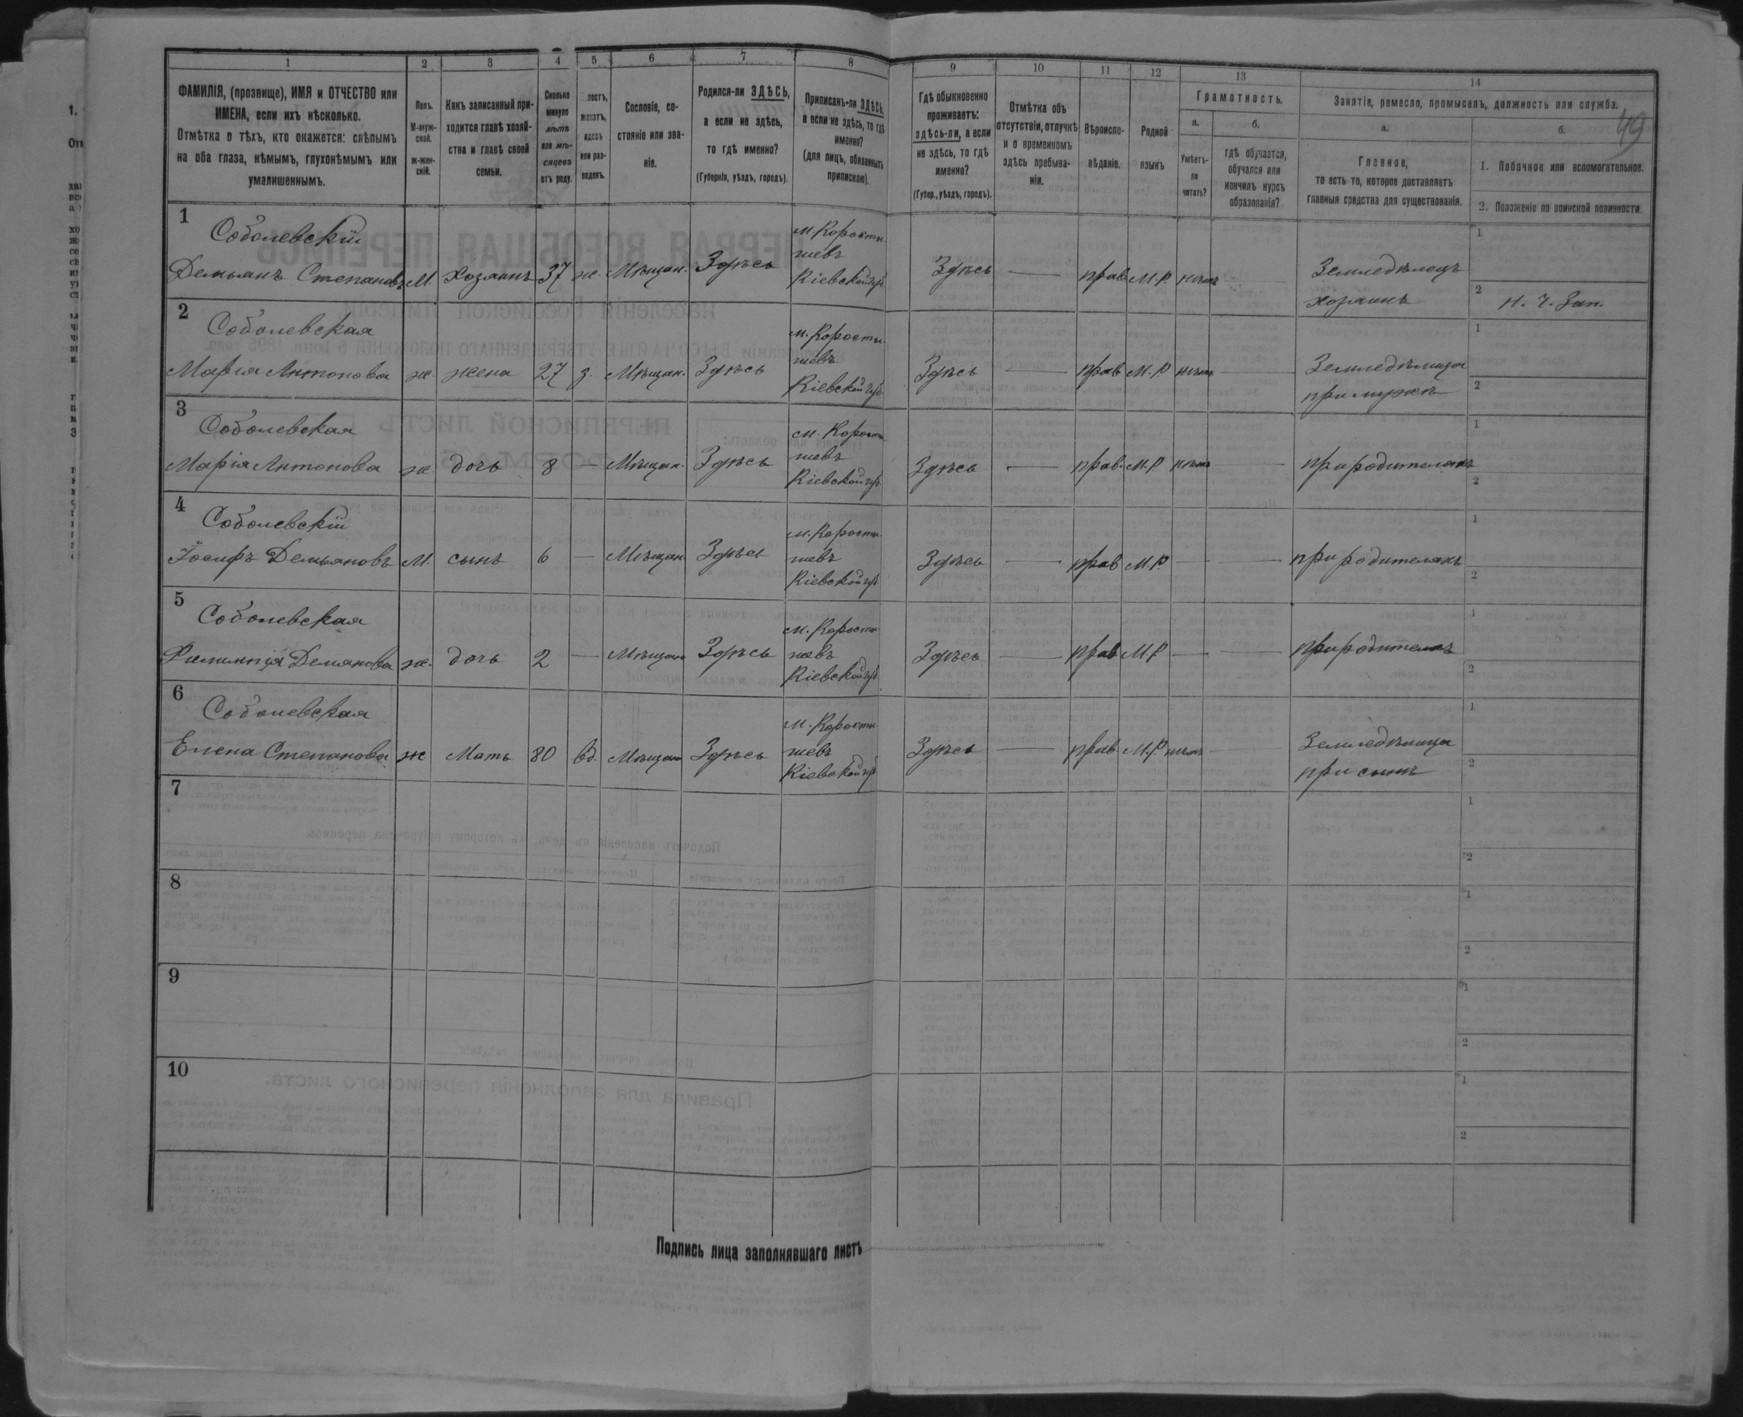 49
1 2 3 4 5 6 7 8 9 10 11 12 13 14
ФАМИЛІЯ, (прозвище), ИМЯ и ОТЧЕСТВО или
ИМЕНА, если ихъ нѣсколько.
Отмѣтка о тѣхъ, кто окажется: слѣпымъ
на оба глаза, нѣмымъ, глухонѣмымъ или
умалишеннымъ.
Полъ.
М-муж-
ской.
ж-жен-
скій.
Какъ записанный при-
ходится главѣ хозяй-
ства и главѣ своей
семьи.
Сколько
минуло
лѣтъ
или мѣ-
сяцевъ
отъ роду.
лостъ,
женатъ,
вдовъ
или раз-
веденъ.
Сословіе, со-
стояніе или зва-
ніе.
Родился-ли ЗДѢСЬ,
а если не здѣсь,
то гдѣ именно?
(Губернія, уѣздъ, городъ).
Приписанъ-ли ЗДѢСЬ,
а если не здѣсь, то гдѣ
именно?
(для лицъ, обязанныхъ
припискою).
Гдѣ обыкновенно
проживаетъ:
здѣсь-ли, а если
не здѣсь, то гдѣ
именно?
(Губер., уѣздъ, городъ).
Отмѣтка объ
отсутствіи, отлучкѣ
и о временномъ
здѣсь пребыва-
ніи.
Вѣроиспо-
вѣданіе.
Родной
языкъ
Грамотность.
а.
Умѣетъ-
ли
читать?
б.
гдѣ обучается,
обучался или
кончилъ курсъ
образованія?
Занятіе, ремесло, промыселъ, должность или служба.
а.
Главное,
то есть то, которое доставляетъ
главныя средства для существованія.
б.
1. Побочное или вспомогательное.
2. Положеніе по воинской повинности.
1
Соболевскій
Демьянъ Степановъ М. хозяинъ 37 ж. Мѣщан. Здѣсь м. Коросты-
шевъ
Кіевской губ. Здѣсь — прав. М.Р. нѣтъ — Земледѣлецъ
хозяинъ
1
2 Н. Ч. Зап.
2
Соболевская
Марія Антонова ж жена 27 з. Мѣщан. Здѣсь м. Коросты-
шевъ
Кіевской губ. Здѣсь — прав М.Р нѣтъ — Земледѣлица
при мужѣ
1
2
3
Соболевская
Марія Антонова ж. дочь 8 — Мѣщан. Здѣсь м. Коросты-
шевъ
Кіевской губ. Здѣсь — прав. М.Р нѣтъ — при родителяхъ
1
2
4
Соболевскій
Іосифъ Демьяновъ М. сынъ 6 — Мѣщан. Здѣсь м. Коросты-
шевъ
Кіевской губ. Здѣсь — прав М.Р. — — при родителяхъ
1
2
5
Соболевская
Демянова ж. дочь 2 — Мѣщан Здѣсь м. Коросты-
шевъ
Кіевской губ. Здѣсь — прав М.Р. — — при родителяхъ
1
2
6
Соболевская
Елена Степанова ж Мать 80 вд. Мѣщан Здѣсь м. Коросты-
шевъ
Кіевской губ. Здѣсь — прав. М.Р нѣтъ — Земледѣлица
при сынѣ
1
2
7
1
2
8
1
2
9
1
2
10
1
2
Подпись лица заполнявшаго листъ